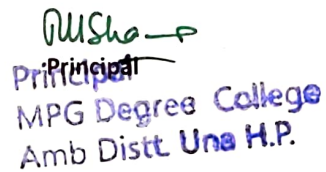 Principal
Principal
MPG Degree College
Amb Distt. Una H.P.